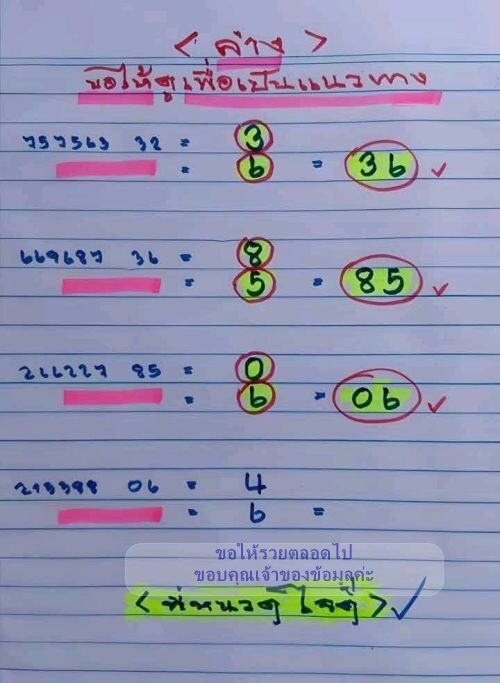 < ล่าง >
ขอให้ดูเพื่อเป็นแนวทาง
757563 32 = 3
= 6 = 36 ✓
669687 36 = 8
= 5 = 85 ✓
216227 85 = 0
= 6 = 06 ✓
213398 06 = 4
= 6 =
ขอให้รวยตลอดไป
ขอบคุณเจ้าของข้อมูลค่ะ